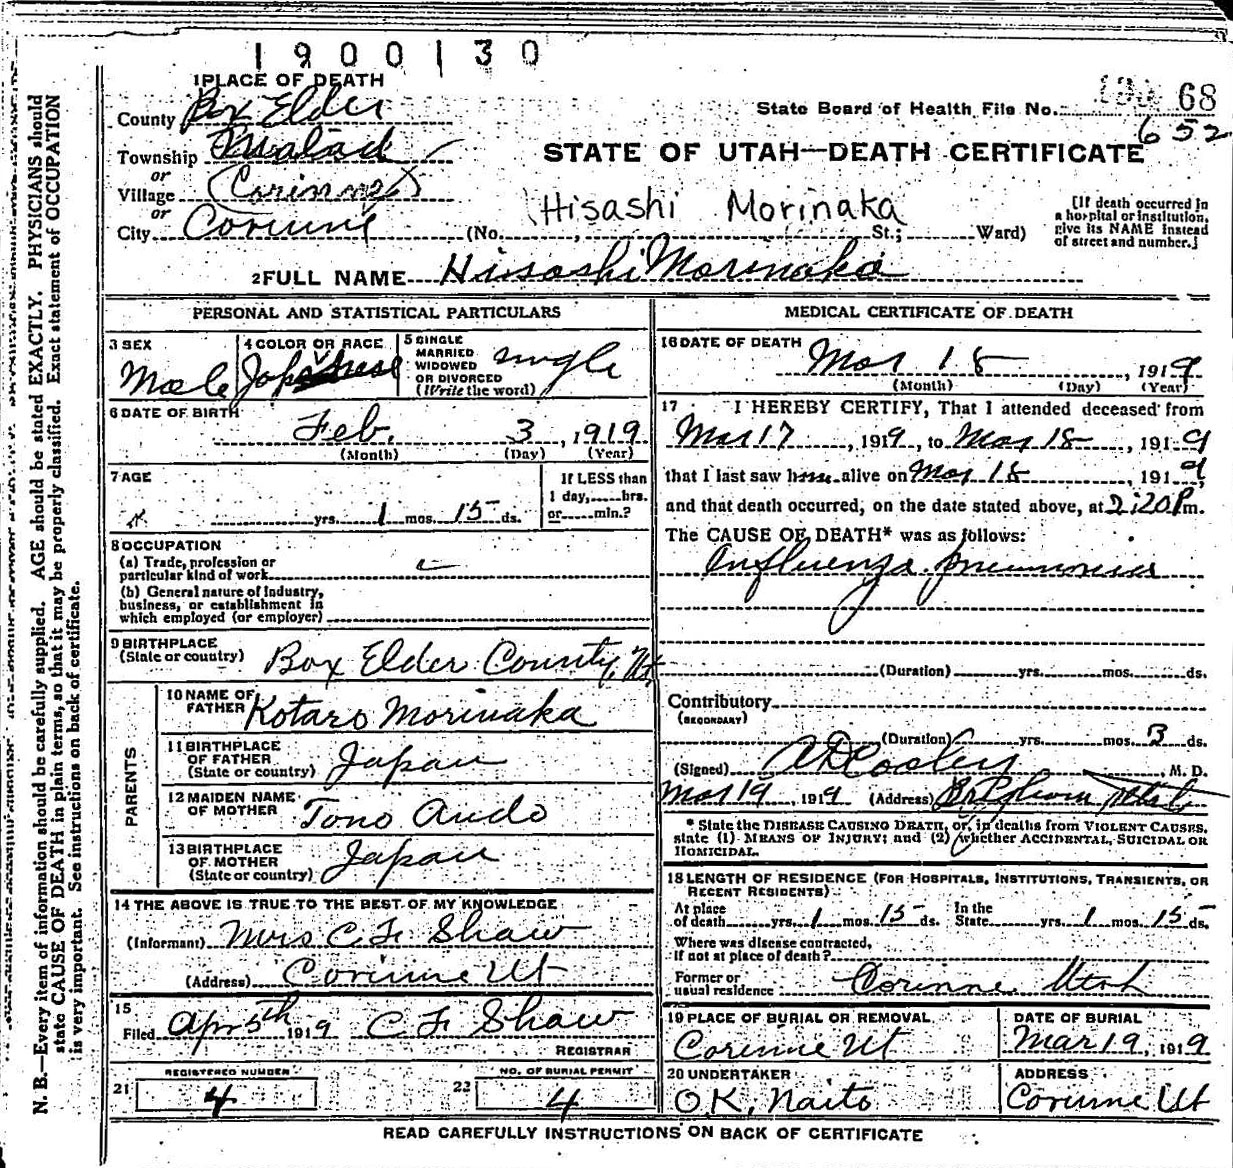 1900130
1 PLACE OF DEATH
County Box Elder
Township Malad
or
Village (Corinne)
or
City Corinne (No. , St.; Ward)
State Board of Health File No. 68
652
STATE OF UTAH—DEATH CERTIFICATE
Hisashi Morinaka
[If death occurred in
a hospital or institution,
give its NAME instead
of street and number.]
2 FULL NAME Hisashi Morinaka
N. B.—Every item of information should be carefully supplied. AGE should be stated EXACTLY. PHYSICIANS should
state CAUSE OF DEATH in plain terms, so that it may be properly classified. Exact statement of OCCUPATION
is very important. See instructions on back of certificate.
PERSONAL AND STATISTICAL PARTICULARS
3 SEX
Male
4 COLOR OR RACE
Japanese
5 SINGLE
MARRIED
WIDOWED
OR DIVORCED
(Write the word)
single
6 DATE OF BIRTH
Feb. 3, 1919
(Month) (Day) (Year)
7 AGE
yrs. 1 mos. 15 ds.
If LESS than
1 day, hrs.
or min.?
8 OCCUPATION
(a) Trade, profession or
particular kind of work
(b) General nature of Industry,
business, or establishment in
which employed (or employer)
9 BIRTHPLACE
(State or country) Box Elder County, Ut
PARENTS
10 NAME OF
FATHER Kotaro Morinaka
11 BIRTHPLACE
OF FATHER
(State or country) Japan
12 MAIDEN NAME
OF MOTHER Tono Ando
13 BIRTHPLACE
OF MOTHER
(State or country) Japan
14 THE ABOVE IS TRUE TO THE BEST OF MY KNOWLEDGE
(Informant) Mrs C. F. Shaw
(Address) Corinne Ut
15
Filed Apr 5th 1919 C F Shaw
REGISTRAR
21 REGISTERED NUMBER
4
22 NO. OF BURIAL PERMIT
4
MEDICAL CERTIFICATE OF DEATH
16 DATE OF DEATH
Mar 18, 1919
(Month) (Day) (Year)
17 I HEREBY CERTIFY, That I attended deceased from
Mar 17, 1919, to Mar 18, 1919
that I last saw him alive on Mar 18, 1919,
and that death occurred, on the date stated above, at 2:20 Pm.
The CAUSE OF DEATH* was as follows:
Influenza pneumonia
(Duration) yrs. mos. ds.
Contributory
(SECONDARY)
(Duration) yrs. mos. 3 ds.
(Signed) A D Cooley, M. D.
Mar 19, 1919 (Address) Brigham Utah
* State the DISEASE CAUSING DEATH, or, in deaths from VIOLENT CAUSES,
state (1) MEANS OF INJURY; and (2) whether ACCIDENTAL, SUICIDAL OR
HOMICIDAL.
18 LENGTH OF RESIDENCE (FOR HOSPITALS, INSTITUTIONS, TRANSIENTS, OR
RECENT RESIDENTS)
At place of death yrs. 1 mos. 15 ds. In the State yrs. 1 mos. 15 ds.
Where was disease contracted,
if not at place of death?
Former or
usual residence Corinne Utah
19 PLACE OF BURIAL OR REMOVAL
Corinne Ut
DATE OF BURIAL
Mar 19, 1919
20 UNDERTAKER
O. K. Naito
ADDRESS
Corinne Ut
READ CAREFULLY INSTRUCTIONS ON BACK OF CERTIFICATE